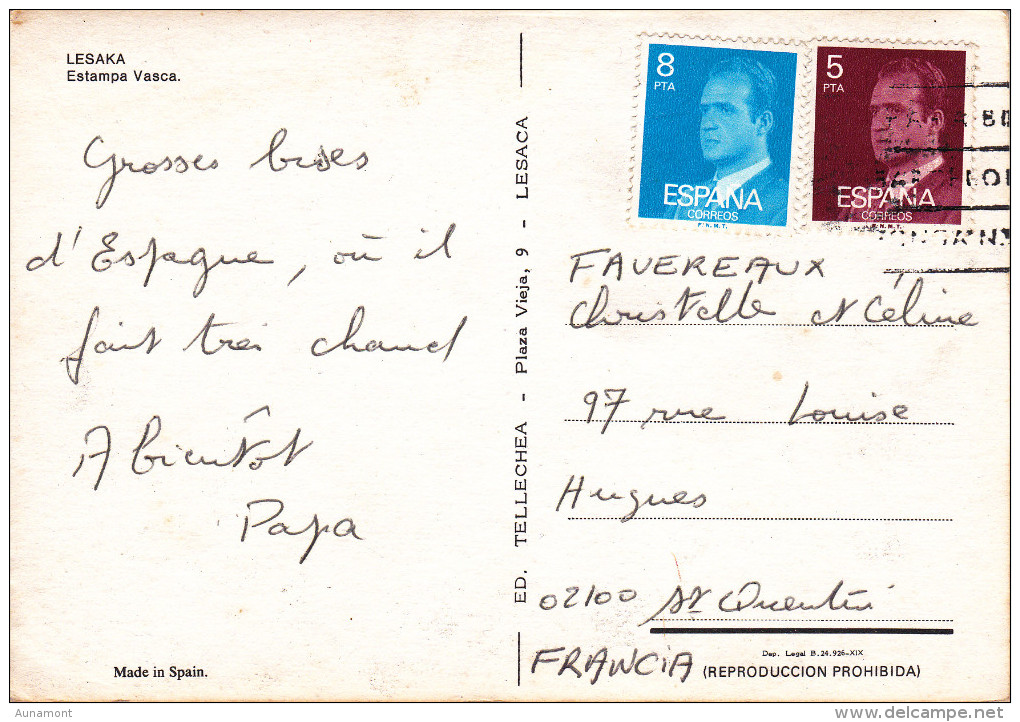 LESAKA
Estampa Vasca.
Grosses bises
d'Espagne, où il
fait très chaud
A bientôt
Papa
Made in Spain.
ED. TELLECHEA - Plaza Vieja, 9 - LESACA
8
PTA
ESPAÑA
CORREOS
F.N.M.T.
5
PTA
ESPAÑA
CORREOS
F.N.M.T.
FAVEREAUX
Christelle et Céline
97 rue Louise
Hugues
02100 St Quentin
FRANCIA
Dep. Legal B. 24.926-XIX
(REPRODUCCION PROHIBIDA)
Aunamont
delcampe.net